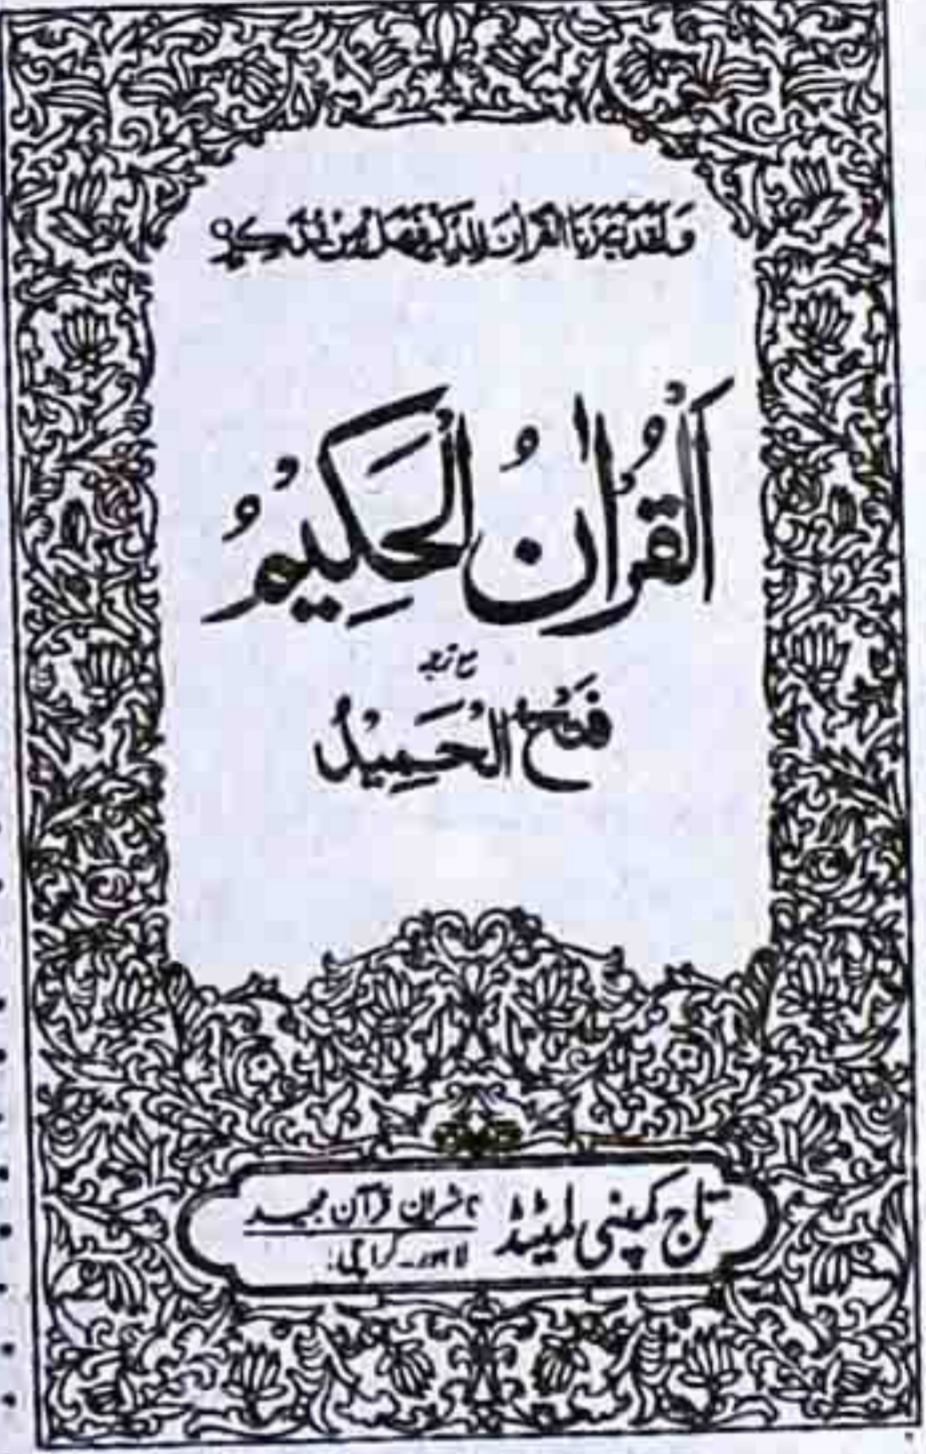 وَلَقَدْ يَسَّرْنَا الْقُرْآنَ لِلذِّكْرِ فَهَلْ مِنْ مُّدَّكِرٍ
اَلْقُرْاٰنُ الْحَكِيْمُ
مع ترجمہ
فَتْحُ الْحَمِيْدُ
تاج کمپنی لمیٹڈ
ناشران قرآن مجید
لاہور۔ کراچی